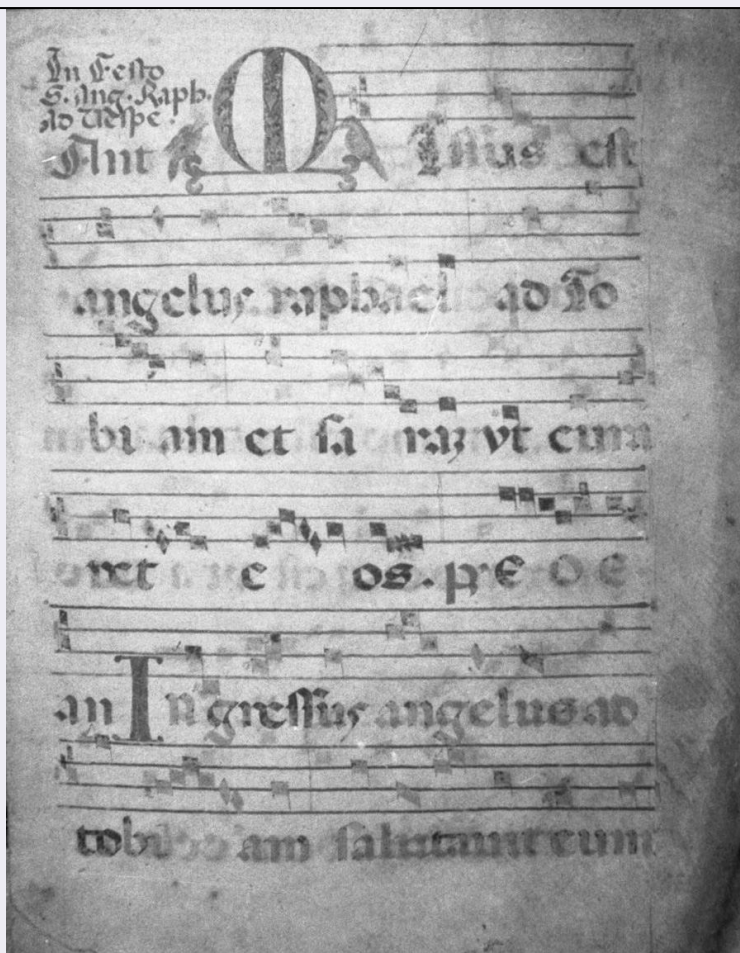 In Festo
S. Ang. Raph.
ad Vespe.
Ant M Issus est
angelus raphael ad To
bi am et sa raz vt cura
ret e os. p̱s E O E
an In gressus angelus ad
tobi am salutauit eum